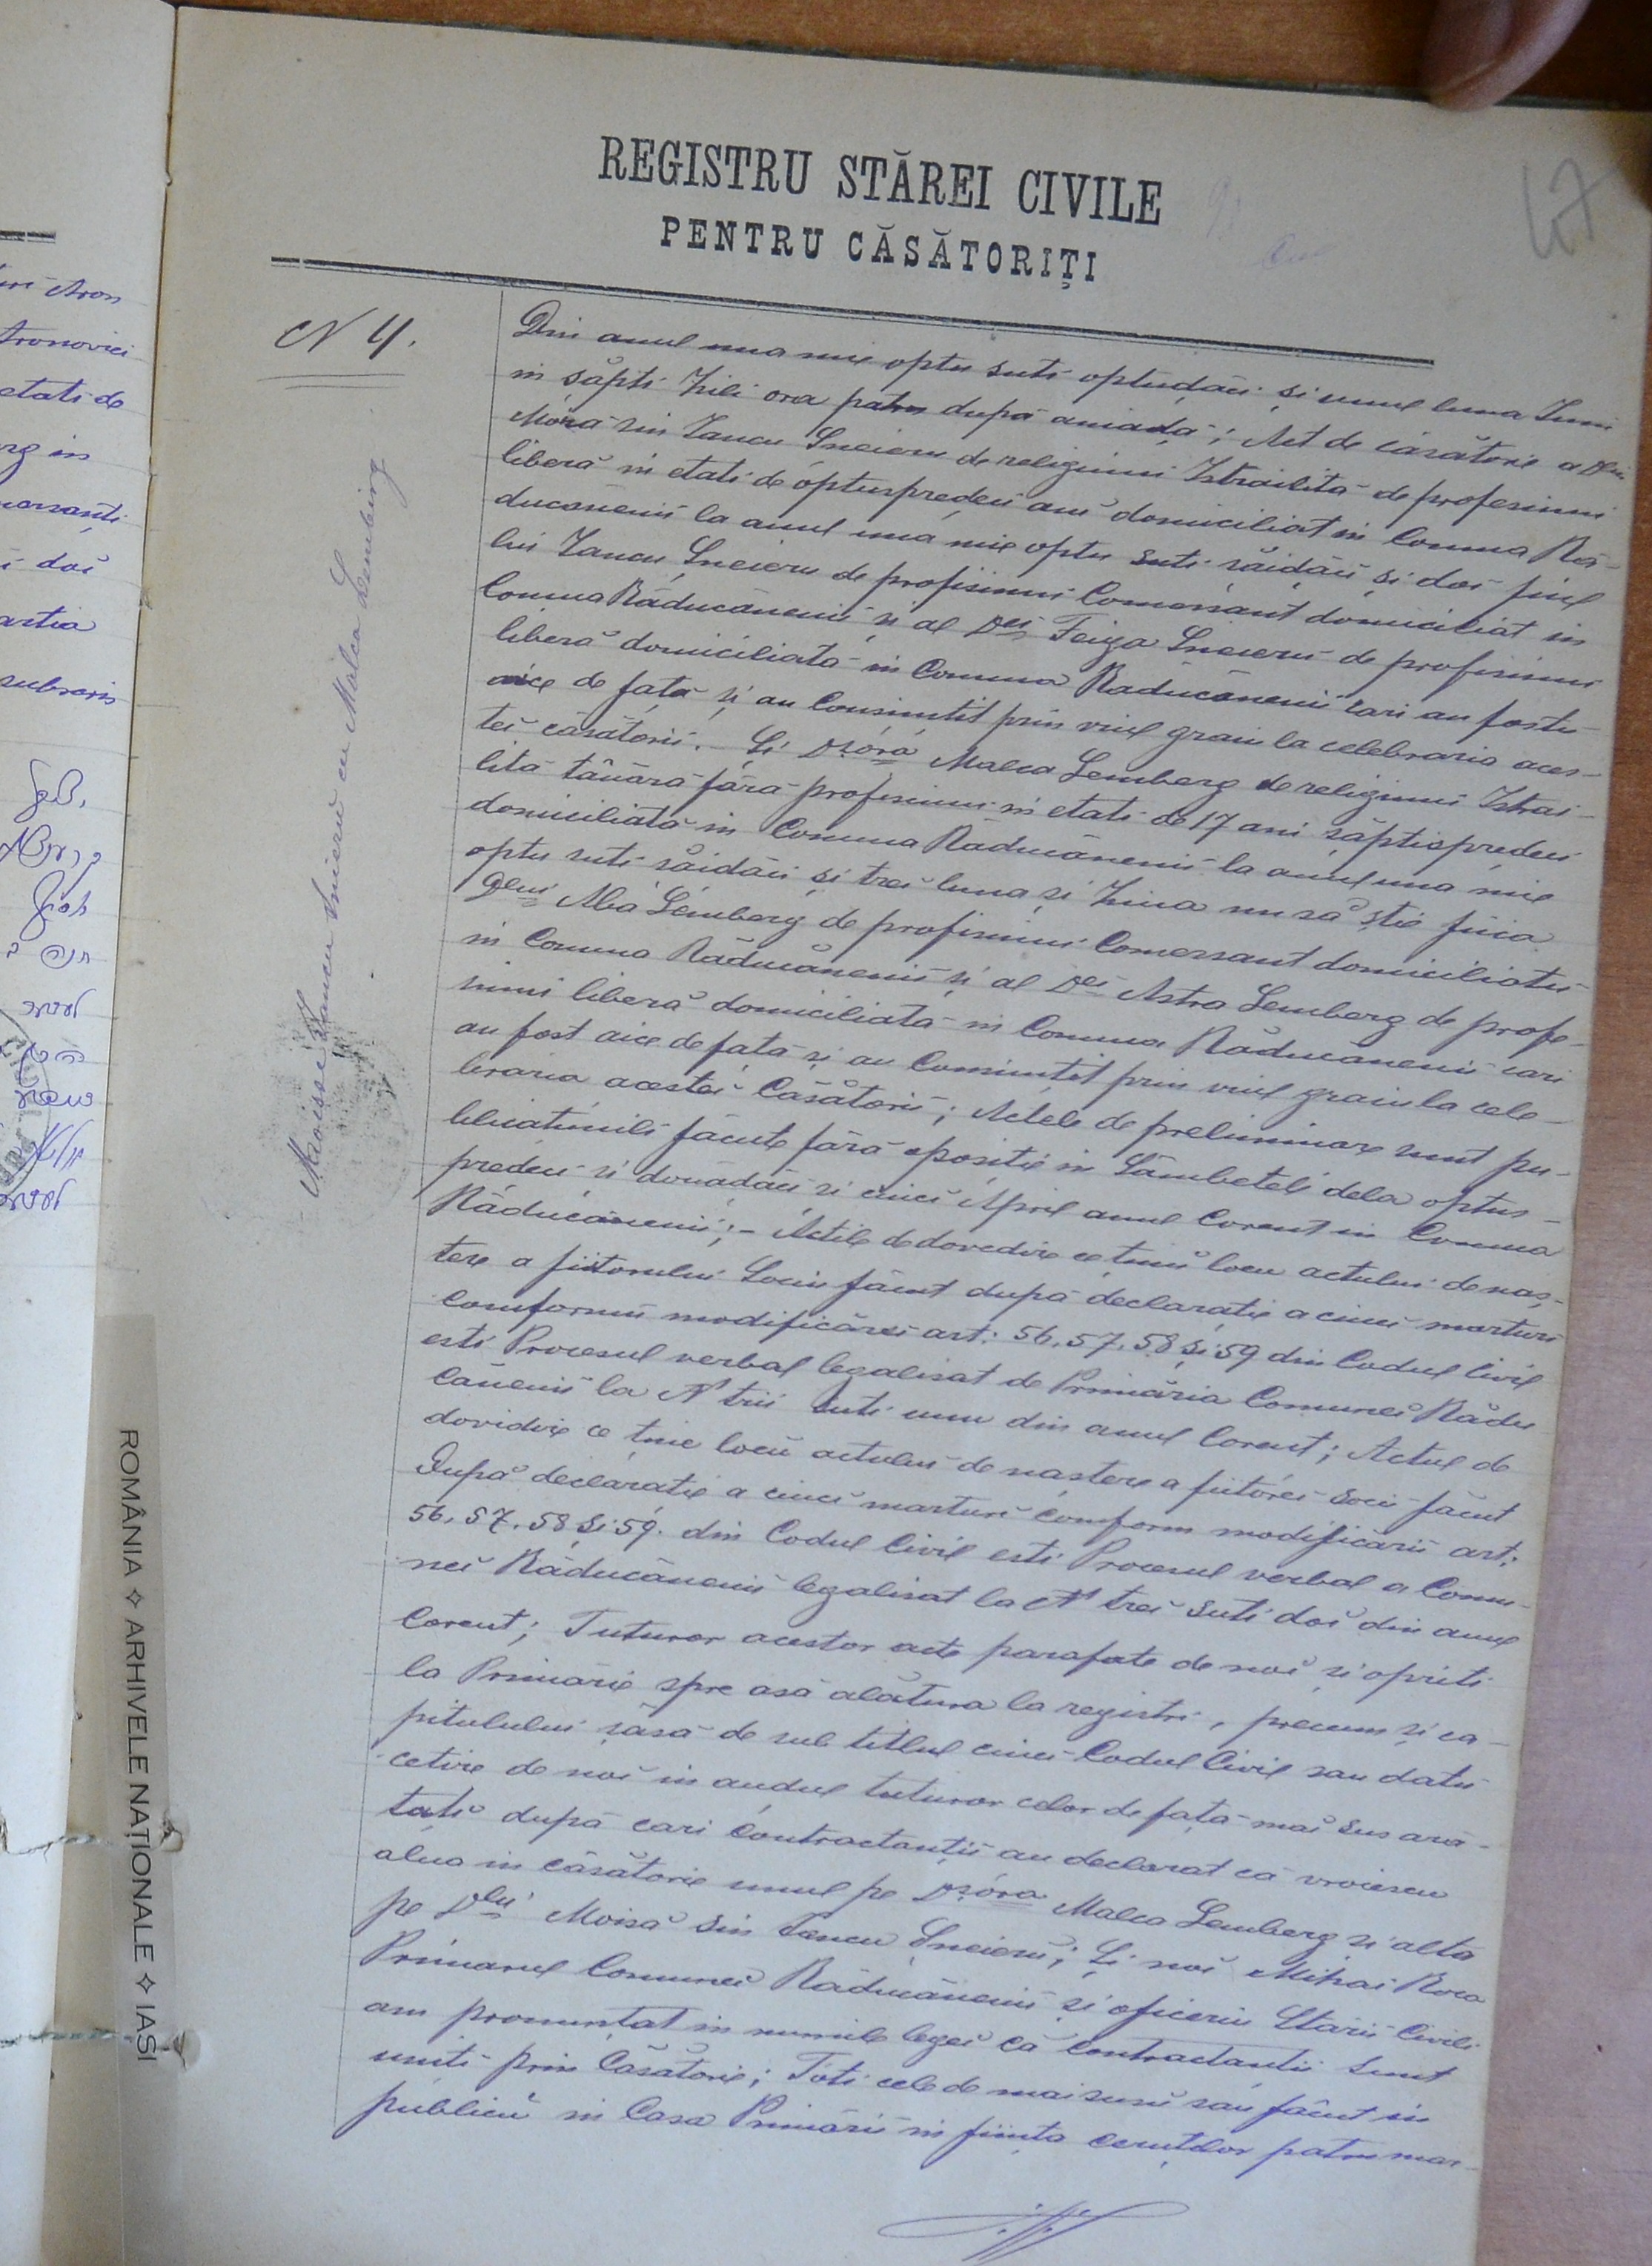 REGISTRU STĂREI CIVILE
PENTRU CĂSĂTORIȚI
47
N 4.
Moisse Iancu Sneieru cu Malca Lemberg
Din anul una mie optu suti optudăci și unul luna Iuni
in săpti Zili ora patru dupa amiada; Act de căsătorie a Dlui
Iancu Sneieru de religiuni Istrailita de profesiuni
liberă in etati de optuspredeci ani domiciliat in Comuna Ră-
ducănenii la anul una mie optu suti săidăci și doi fiul
lui Iancu Sneieru de profisiuni Comersant domiciliat in
Comuna Răducănenii și al Dei Feiga Sneieru de profisiuni
liberă domiciliata in Comuna Raducanenii cari au fostu
aice de fata și au Consimtit prin viul graiu la celebraria aces-
tei căsătorii. Și Dșóra Malca Lemberg de religiuni Istrai-
lită tânără fără profesiuni in etati de 17 ani săptisprederi
domiciliată in Comuna Raducănenii la anul una mie
optu suti săidăci și trei luna și Ziua nu să știe fiica
Dlui Alba Lemberg de profisiuni Comersant domiciliatu
in Comuna Răducănenii și al Dei Astra Lemberg de profe-
siuni liberă domiciliată in Comuna Răducănenii cari
au fost aice de fata și au Consimtit prin viul graiu la cele-
braria acestei Căsătorii; Actele de preliminare sunt pu-
blicatiunili făcute fără opositie in Sâmbetele dela optus-
predeci și douădăci și cinci April anul Corent in Comuna
Răducănenii;- Actile de dovedire ce tinu locu actului de naș-
tere a fiitorului Sociu făcut dupa declaratie a cinci marturi
Comformii modificărei art: 56. 57. 58 și 59 din Codul Civil
esti Procesul verbal legalisat de Primăria Comunei Rădu-
cănenii la N trii suti unu din anul Corent; Actul de
dovidire ce tine locu actului de nastere a fiitórei socii făcut
Dupa declaratie a cinci marturi comform modificării art:
56. 57. 58 și 59. din Codul Civil esti Procesul verbal a Comu-
nei Răducănenii legalisat la N trei suti doi din anul
Corent; Tuturor acestor acte parafate de noi și opriti
la Primărie spre asă alătura la registri, precum și ca-
pitolului șasă de sub titlul cinci Codul Civil sau datu
cetire de noi in audul tuturor celor de fața mai sus ară-
tați după cari Contractanții au declarat că vroiescu
alua in căsătorie unul pe Dșóra Malca Lemberg și alta
pe Dlui Moisă sin Iancu Sneieru; Și noi Mihai Roca
Primarul Comunei Răducănenii și oficeriu Starii Civili
am pronuntat in numile legei că Contractanții sunt
uniti prin Căsătorie; Toti cele de mai susu sau făcut in
publicu in Casa Primării in fiinta cerutilor patru mar-
ROMÂNIA ✧ ARHIVELE NAȚIONALE ✧ IASI
Aron
Aronovici
etati de
rg in
doi
subscris